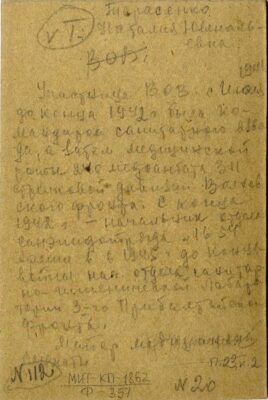 Тарасенко
v I.
Наталия Ювеналь-
евна
ВОВ.
1941
Участница ВОВ. с Июля
до конца 1942 была ко-
мандиром санитарного взво
да, а затем медицинской
роты медсанбата 311
стрелковой дивизии Волхов
ского фронта. С конца
1942 г. – начальник отдела
санэпидотряда
в 1945 г. до конца
войны нач. отдела санитар
но-гигиенической лабора
тории 3-го Прибалтийского
фронта.
Майор медицинской
службы
п. 23, г. 2
N 112
МИТ-КП-1862
Ф-397
N 20